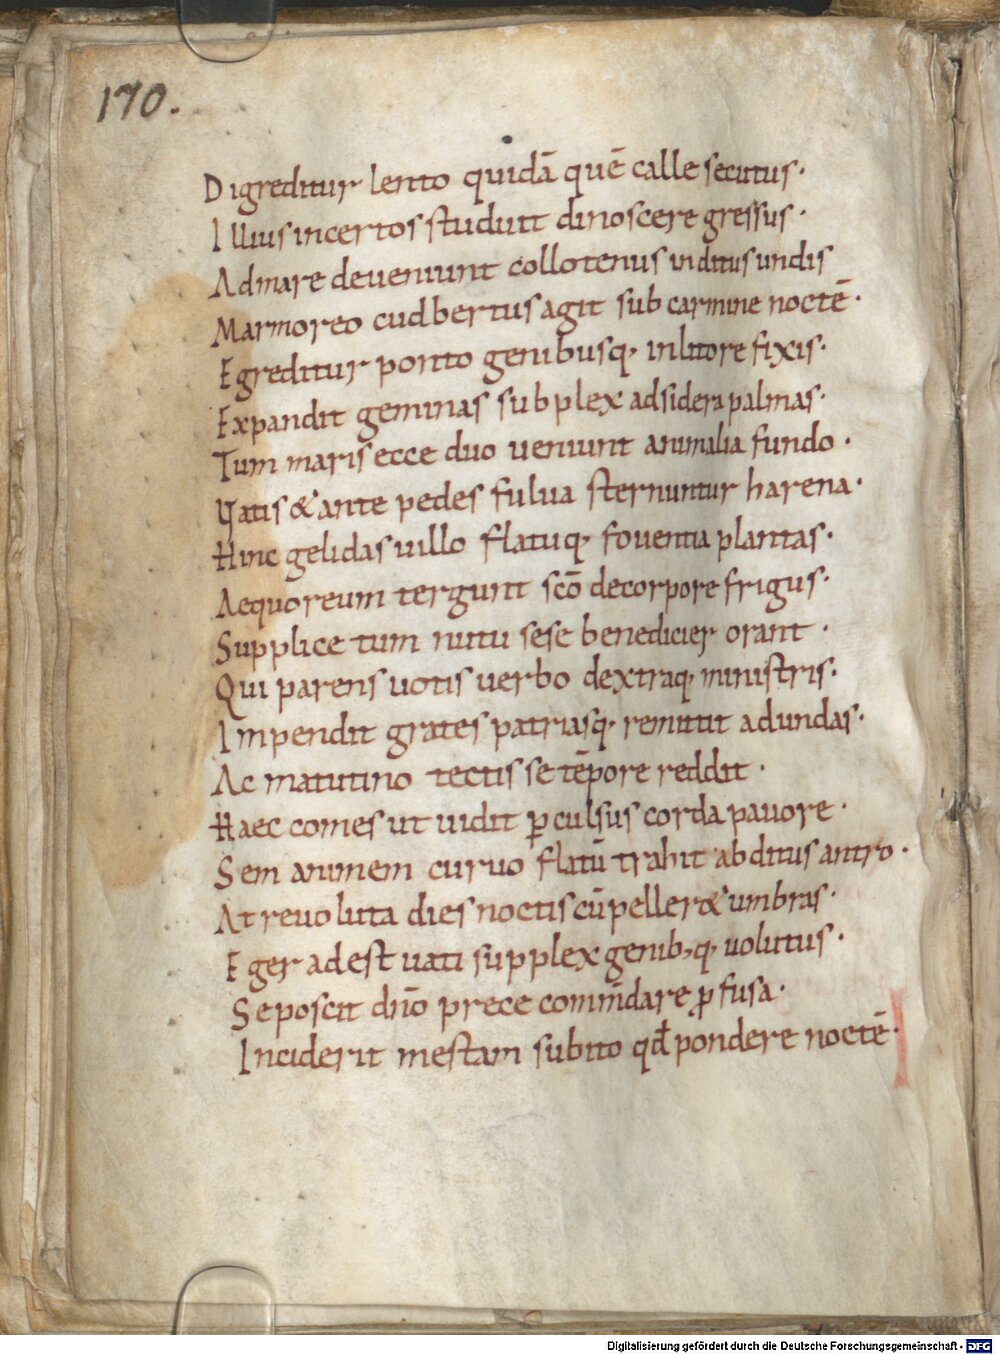 170.
Digreditur lento quidā quē calle secutus·
Illius incertos studuit dinoscere gressus·
Ad mare deveniunt collotenus inditus undis
Marmoreo cudbertus agit sub carmine noctē·
Egreditur ponto genibusq· in litore fixis·
Expandit geminas subplex ad sidera palmas·
Tum maris ecce duo veniunt animalia fundo·
Vatis & ante pedes fulua sternuntur harena·
Hinc gelidas uillo flatuq· fouentia plantas·
Aequoreum tergunt scō de corpore frigus·
Supplice tum nutu sese benedicier orant·
Qui parens uotis uerbo dextraq· ministris·
Impendit grates patriasq· remittit ad undas·
Ac matutino tectis se tēpore reddit·
Haec comes ut uidit ꝑculsus corda pauore·
Sem animem curuo flatū trahit abditus antro·
At reuoluta dies noctis cū peller& umbras·
Eger adest uati supplex genib;q· uolutus·
Se poscit dn̄o prece comm̄dare ꝓfusa·
Inciderit mestam subito qđ pondere noctē·
Digitalisierung gefördert durch die Deutsche Forschungsgemeinschaft - DFG